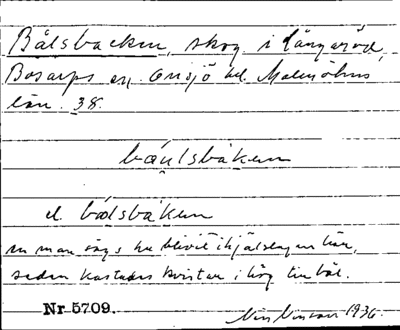 Bålsbacken, skog i Långaröd,
Bosarps sn. Onsjö hd. Malmöhus
län. 38.
båulsbåken
el. bålsbåken
en man sägs ha blivit ihjälslagen här,
sedan kastades kvistar i hög till bål.
Nr 5709.
Nils Nilsson 1936.